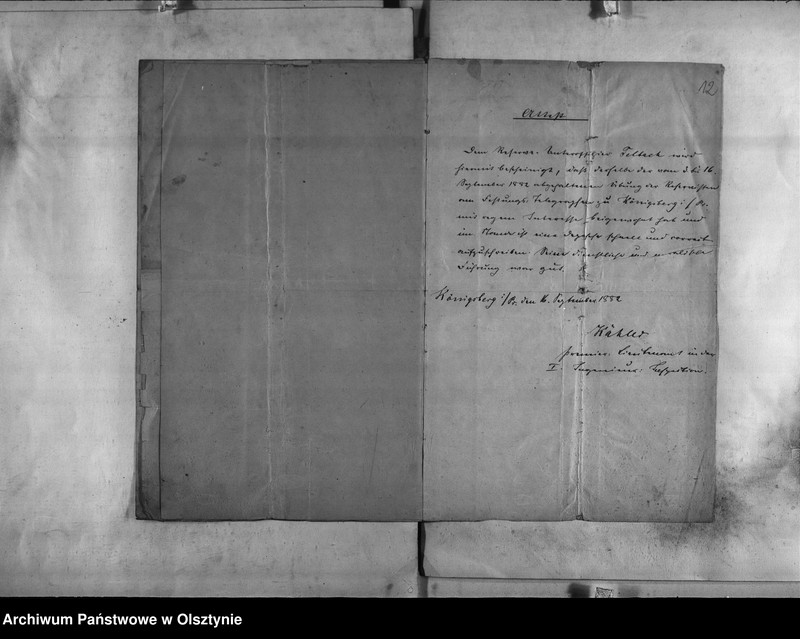 12
Attest
Dem Reserve-Unterofficier Felbeck wird
hiermit bescheinigt, daß derselbe der vom 3. bis 16.
September 1882 abgehaltenen Übung der Reservisten
am Festungs-Telegraphen zu Königsberg i/Pr.
mit regem Interesse beigewohnt hat und
im Stande ist eine Depesche schnell und correct
aufzuschreiben. Seine dienstliche und
Führung war gut.
Königsberg i/Pr. den 16. September 1882
Köhler
Premier-Lieutenant in der
I Ingenieur-Inspection.
Archiwum Państwowe w Olsztynie